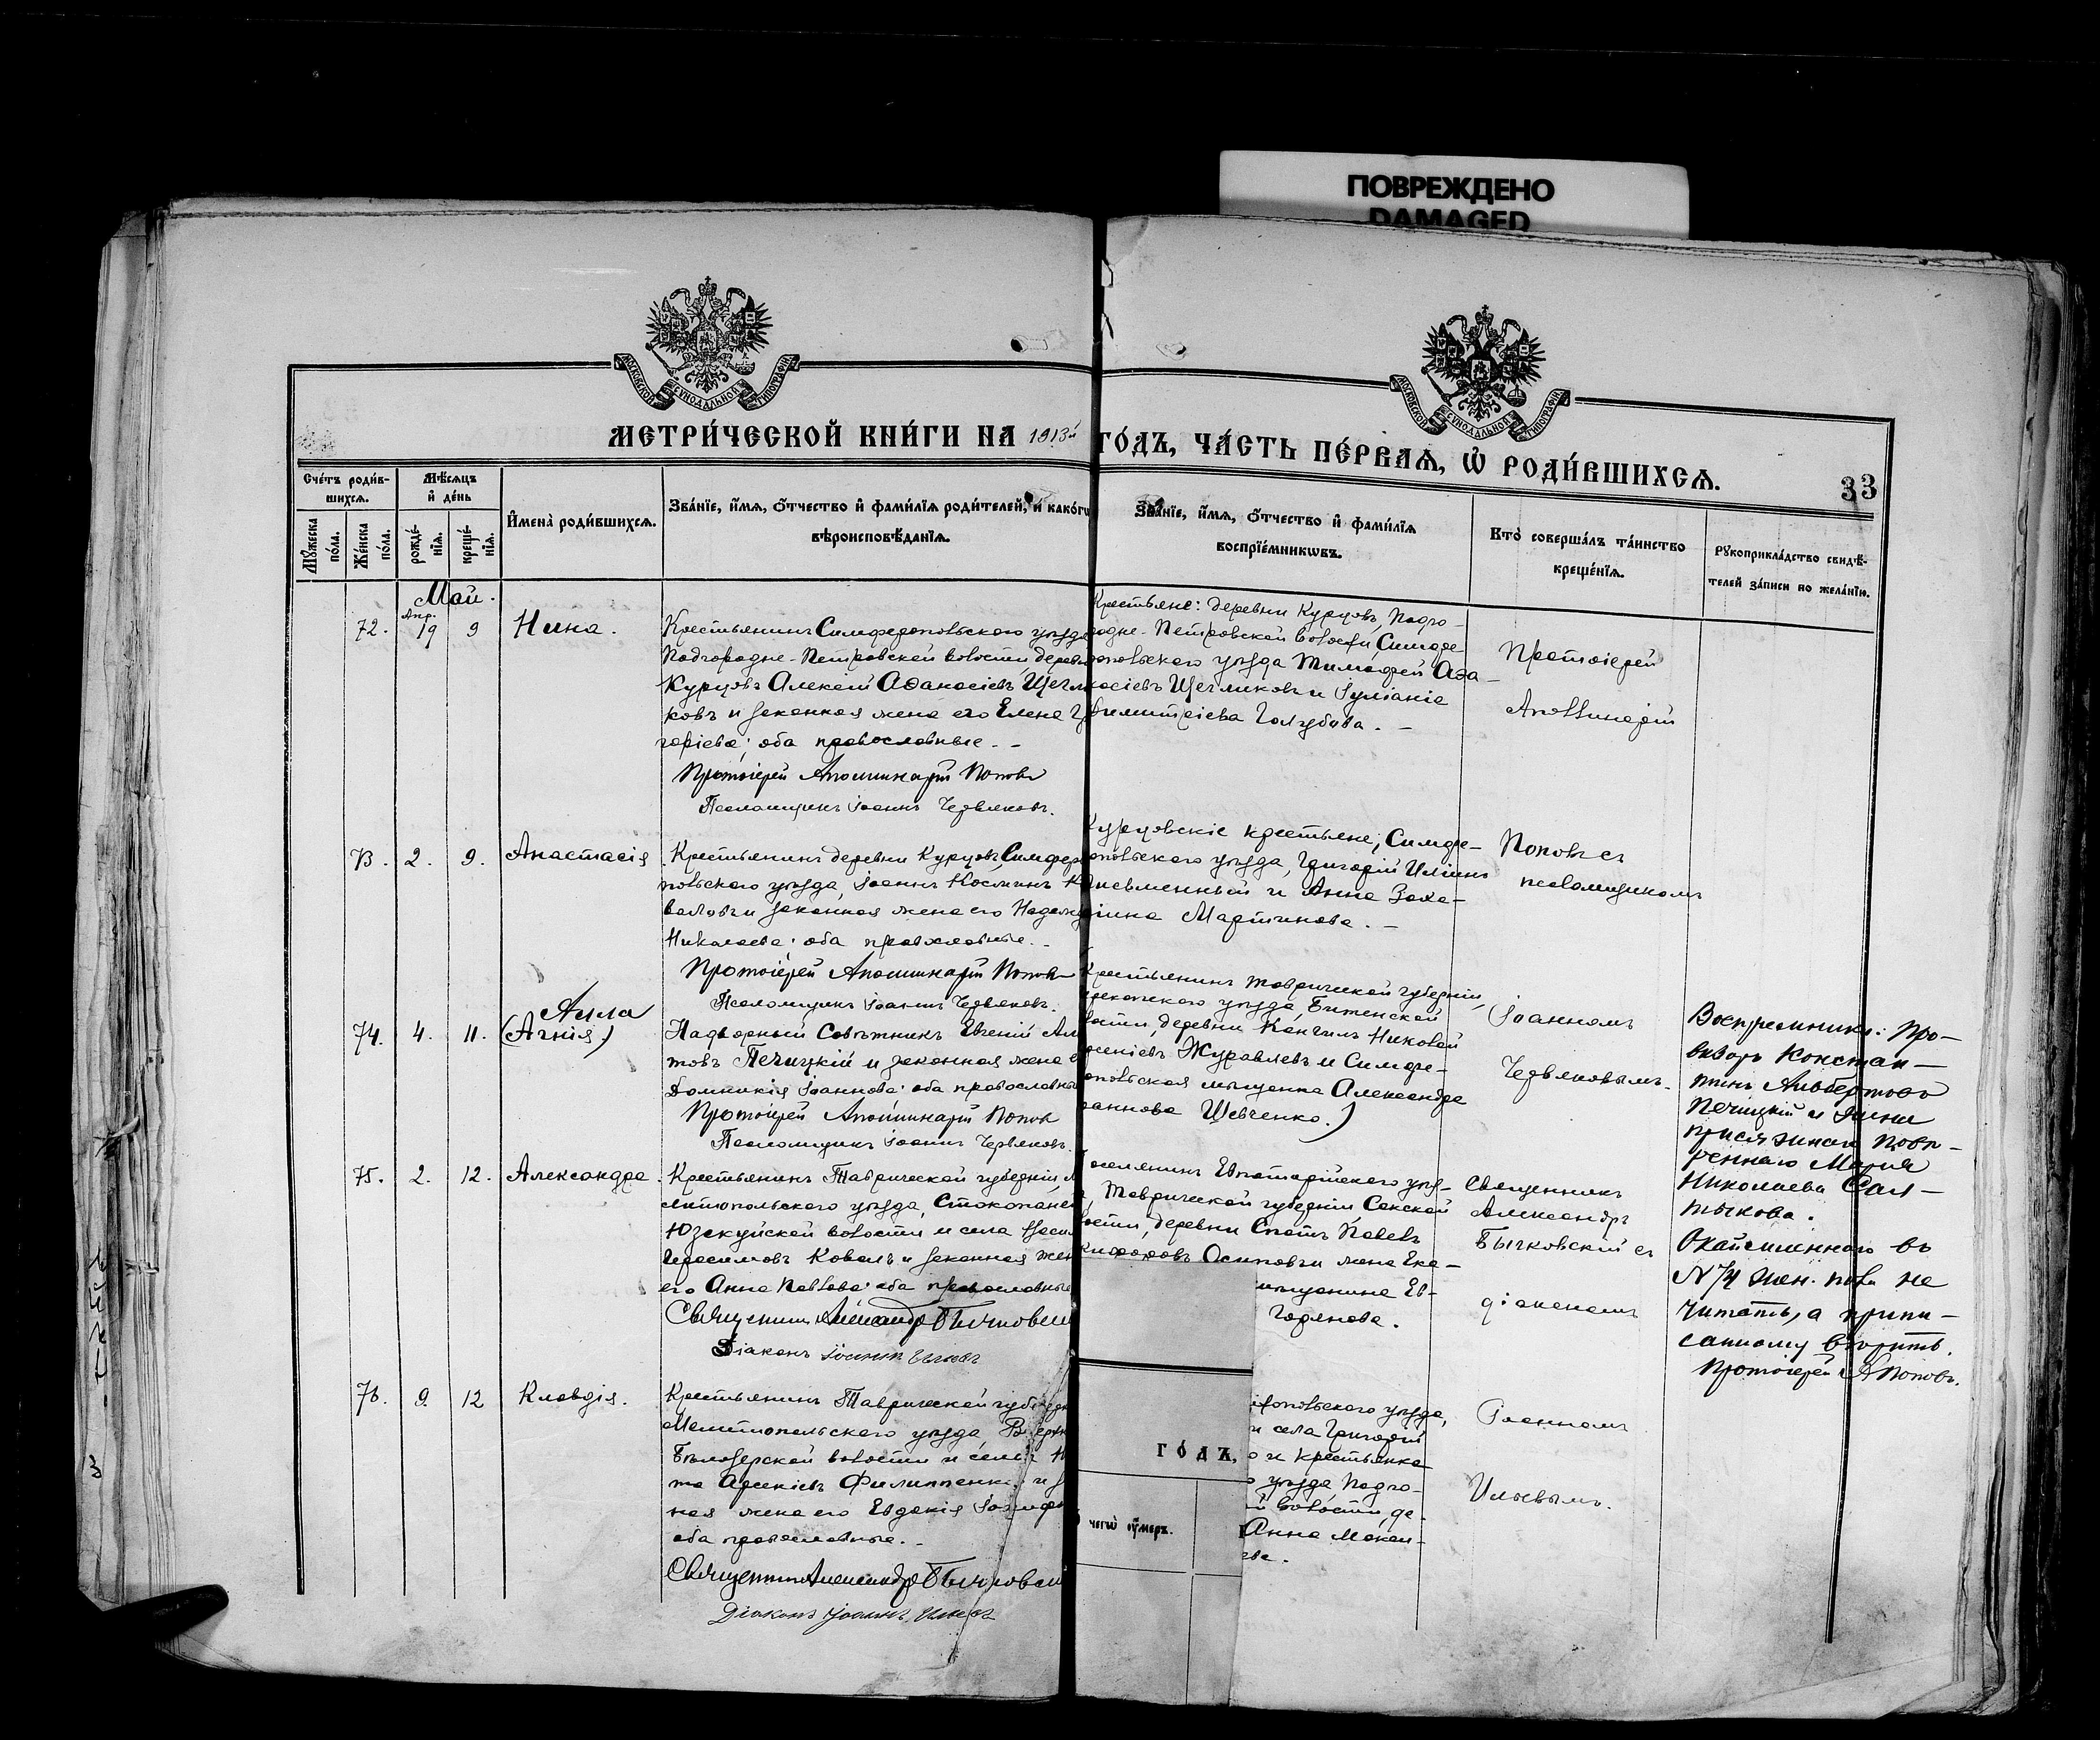 ПОВРЕЖДЕНО
DAMAGED
МОСКОВСКОЙ СѴНОДАЛЬНОЙ ТИПОГРАФІИ
МОСКОВСКОЙ СѴНОДАЛЬНОЙ ТИПОГРАФІИ
МЕТРИ́ЧЕСКОЙ КНИ́ГИ НА 1913й
ГО́ДЪ, ЧА́СТЬ ПЕ́РВАѦ, Ѡ҆ РОДИ́ВШИХСѦ.
33
Сче́тъ роди́в-
шихсѧ.
Мѣ́сѧцъ
и҆ де́нь
Мꙋ́жеска
по́ла.
Же́нска
по́ла.
рожде́-
нїѧ.
креще́-
нїѧ.
И҆мена̀ роди́вшихсѧ.
Зва́нїе, и҆́мѧ, ѻ҆́тчество и҆ фами́лїѧ роди́телей, и҆ како́гѡ
вѣроисповѣ́данїѧ.
Зва́нїе, и҆́мѧ, ѻ҆́тчество и҆ фами́лїѧ
воспрїе́мникѡвъ.
Кто̀ соверша́лъ та́инство
креще́нїѧ.
Рꙋкоприкла́дство свидѣ́-
телей за́писи по жела́нїю.
Май.
72.
Апр.
19
9
Нина.
Крестьянинъ Симферопольского уѣзда
Подгородне-Петровской волости, дерев
Курцовъ Алексій Аѳанасіевъ Щегл
ковъ и законная жена его Елена Гр
горіева; оба православные. -
Протоіерей Аполлинарій Поповъ
Псаломщикъ Іоаннъ Червяковъ.
Крестьяне: деревни Курцовъ, Подго-
родне-Петровской волости, Симфе
ропольского уѣзда Тимофей Аѳа-
насіевъ Щегликовъ и Іуліанія
Димитріева Голубова. -
Протоіерей
Аполлинарій
73.
2.
9.
Анастасія
Крестьянинъ деревни Курцовъ, Симферо
польского уѣзда, Іоаннъ Косминъ К
валовъ и законная жена его Надежд
Николаева; оба православные. -
Протоіерей Аполлинарій Поповъ
Псаломщикъ Іоаннъ Червяковъ.
Курцовскіе крестьяне, Симфе-
ропольского уѣзда, Григорій Иліинъ
Письменный и Анна Заха-
ріина Мартинова. -
Поповъ съ
псаломщикомъ
74.
4.
11.
Алла
(Агнія)
Надворный Совѣтникъ Евгеній Ал
товъ Печицкій и законная жена е
Домникія Іоаннова; оба православны
Протоіерей Аполлинарій Поповъ
Псаломщикъ Іоаннъ Червяковъ.
Крестьянинъ Таврической губерніи,
рекопского уѣзда, Битенской
волости, деревни Николай
Журавлевъ и Симфе-
ропольская мѣщанка Александра
Іоаннова Шевченко.)
Іоанномъ
Червяковымъ.
Воспріемники: Про-
визоръ Констан-
тинъ Альбертовъ
Печицкій и жена
присяжнаго повѣ-
реннаго Марія
Николаева Сал-
тыкова.
Окайменнаго въ
№74 жен. пола не
читать, а припи-
санному вѣрить.
Протоіерей А Поповъ.
75.
2.
12.
Александра.
Крестьянинъ Таврической губерніи, М
литопольского уѣзда,
Юзкуйской волости и села
Герасимовъ Коваль и законная жен
его Анна Павлова; оба православные
Священникъ Александръ Бычковск
Діаконъ Іоаннъ Ильевъ
Поселянинъ Евпаторійского уѣз-
Таврической губерніи Сакской
волости, деревни Спатъ Павелъ
Осиповъ и жена Ека-
мѣщанина Ев-
Горянова.
Священникъ
Александръ
Бычковскій съ
діакономъ
76.
9.
12
Клавдія.
Крестьянинъ Таврической губерн
Мелитопольского уѣзда, Верхн
Бѣлозерской волости и села
та Арсеніевъ Филиппенко и з
ная жена его Евдокія
оба православные. -
Священникъ Александръ Бычковск
Діаконъ Іоаннъ Ильевъ
ГО́ДЪ,
чегѡ̀ ᲂу҆́меръ.
ропольского уѣзда,
и села Григорій
о и крестьянка
уѣзда Подго-
й волости, де-
Анна
ва.
Іоанномъ
Ильевымъ.